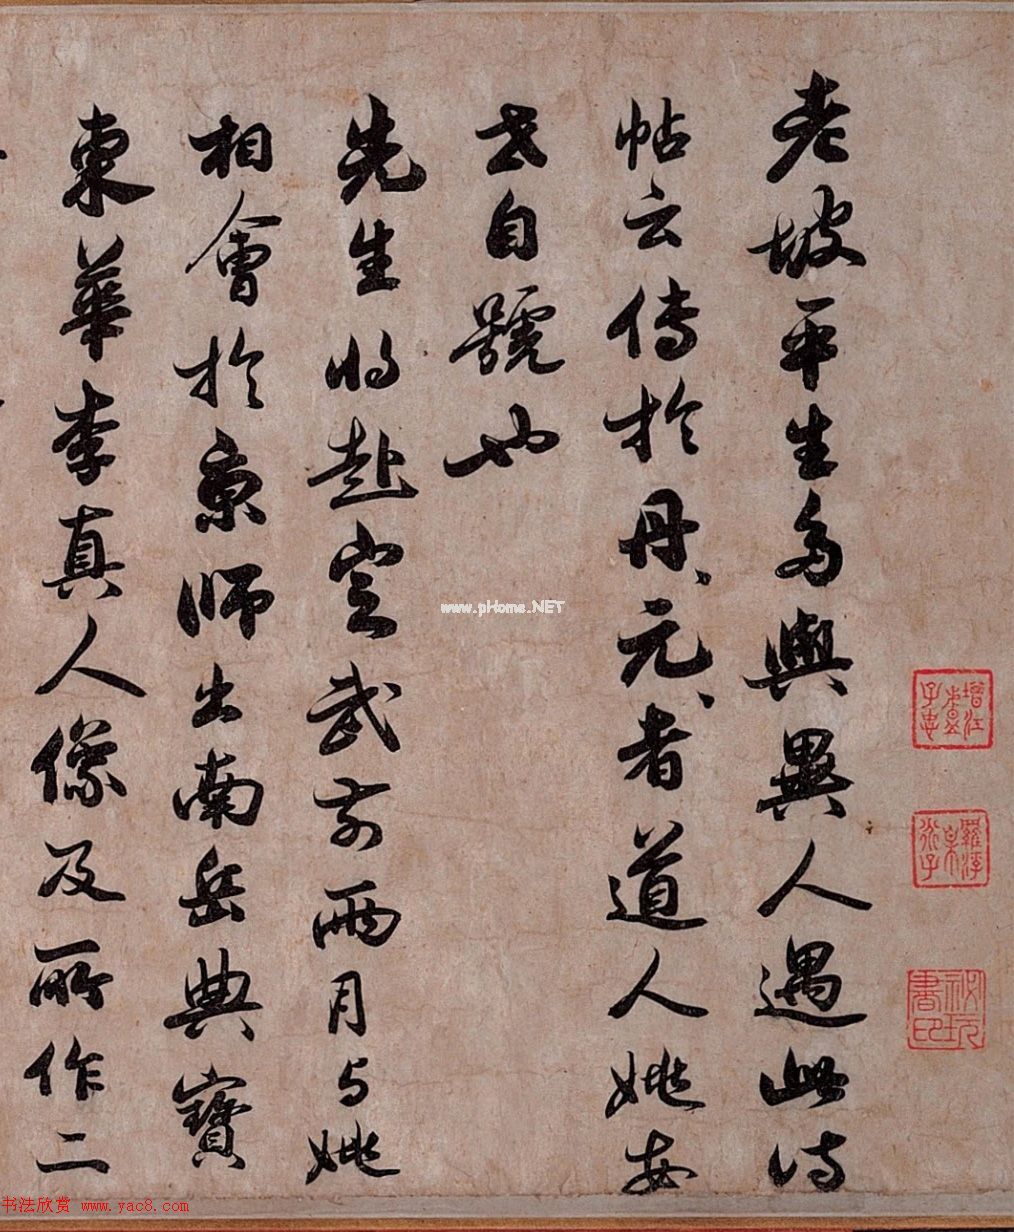 老坡平生多與異人遇此詩
帖云傳於丹元者道人姚安
世自號也
先生將赴定武前兩月与姚
相會於京師出南岳典寶
東華李真人像及所作二
www.pHome.NET
书法欣赏 www.yac8.com